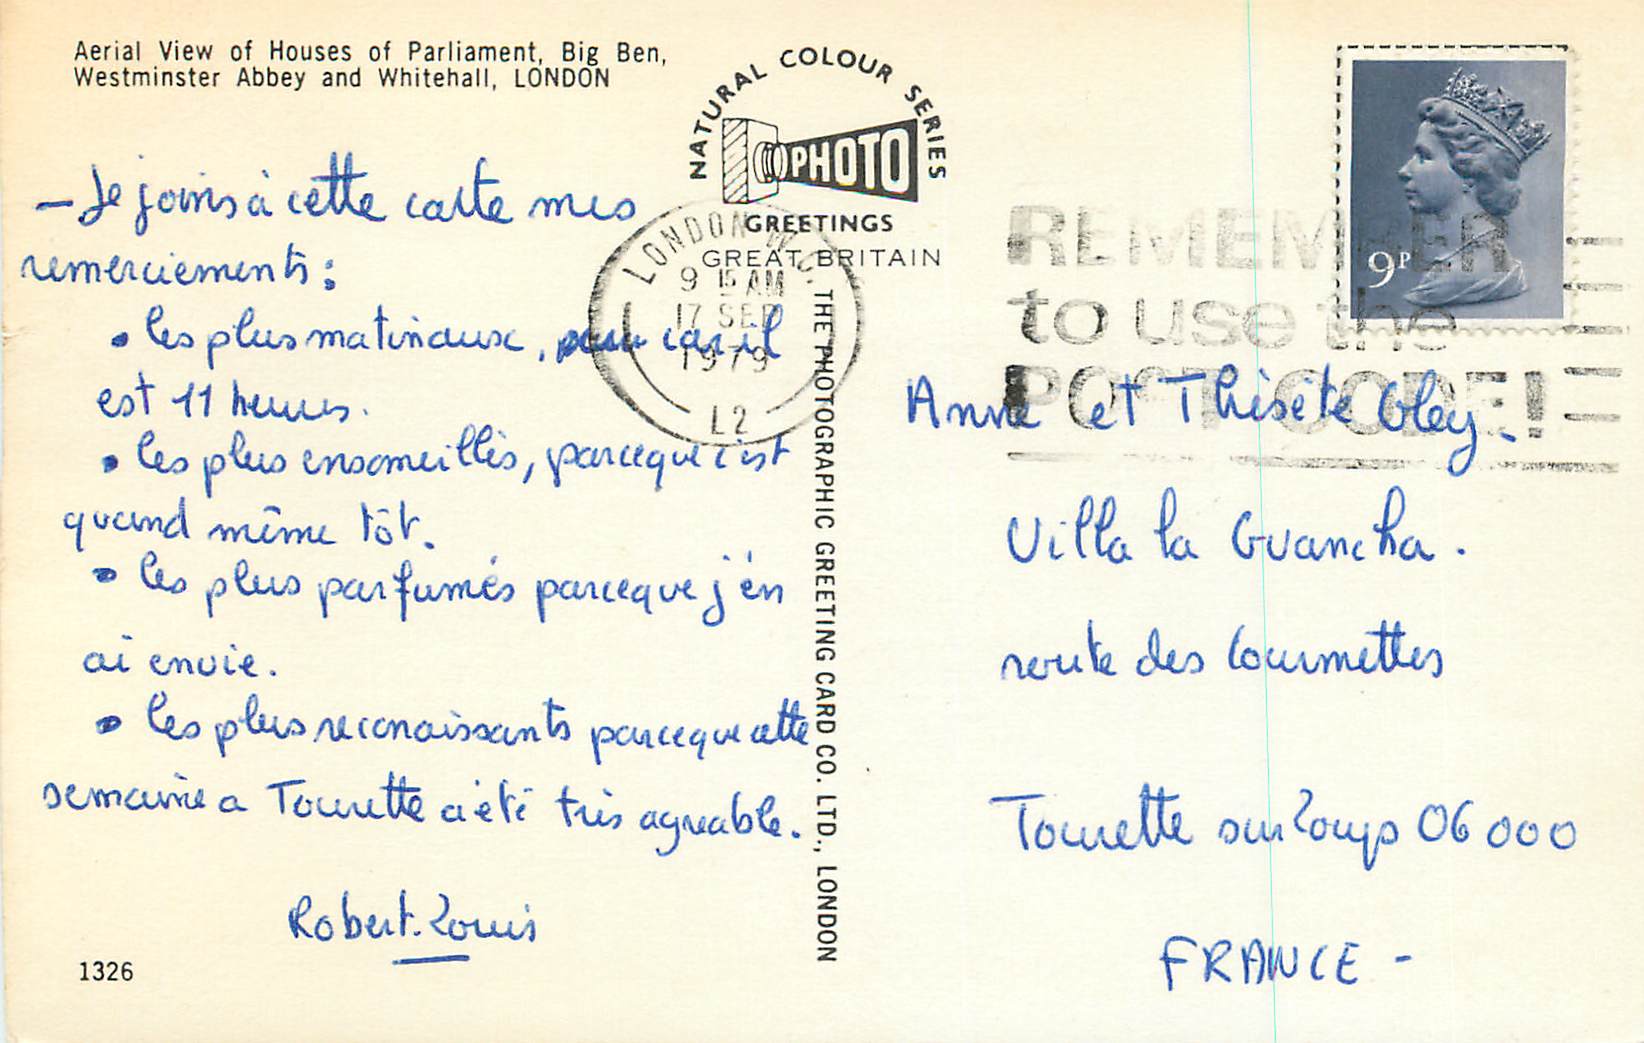 Aerial View of Houses of Parliament, Big Ben,
Westminster Abbey and Whitehall, LONDON
NATURAL COLOUR SERIES
PHOTO
GREETINGS
GREAT BRITAIN
LONDON W.C.
9 15 AM
17 SEP
1979
L2
REMEMBER
to use the
POST CODE!
9P
– Je joins à cette carte mes
remerciements :
• les plus matinaux, car il
est 11 heures.
• les plus ensomeillés, parceque c'est
quand même tôt.
• les plus parfumés parceque j'en
ai envie.
• les plus reconaissants parceque cette
semaine a Tourette a été très agreable.
Robert.Louis
1326
THE PHOTOGRAPHIC GREETING CARD CO. LTD., LONDON
Anne et Thisète
Villa la Guancha.
route des Courmettes
Tourette sur Loups 06 000
FRANCE -